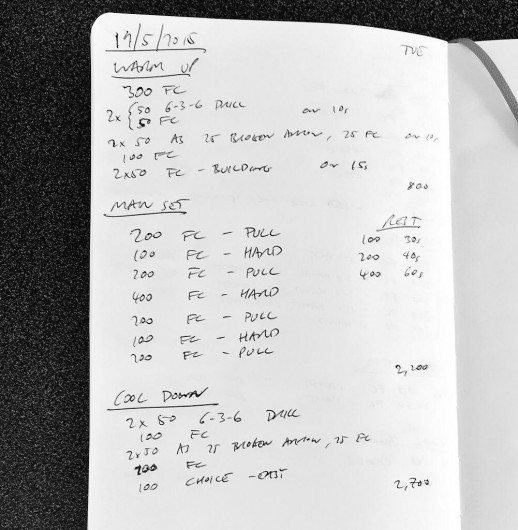 19/5/2015 TUE
WARM UP
300 FC
2x { 50 6-3-6 DRILL on 10s
50 FC
2x 50 AS 25 BROKEN ARROW, 25 FC on 10s
100 FC
2x50 FC - BUILDING on 15s
800
MAIN SET
REST
200 FC - PULL 100 30s
100 FC - HARD 200 40s
200 FC - PULL 400 60s
400 FC - HARD
200 FC - PULL
100 FC - HARD
200 FC - PULL
2,200
COOL DOWN
2 x 50 6-3-6 DRILL
100 FC
2x50 AS 25 BROKEN ARROW, 25 FC
100 FC
100 CHOICE - EASY
2,700